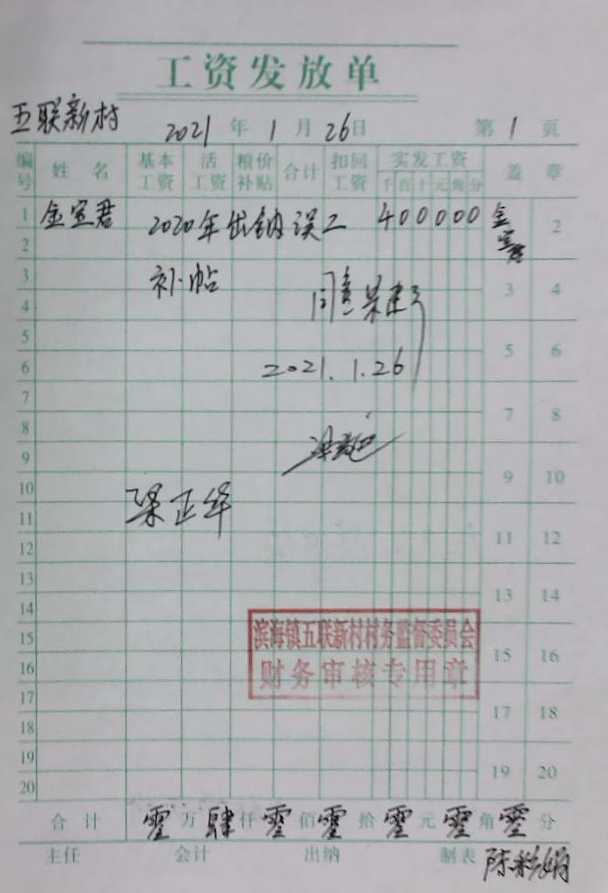 工资发放单
五联新村 2021年1月26日 第1页
编号 姓名 基本工资 活工资 粮价补贴 合计 扣回工资 实发工资 盖章
千百十元角分
1 金宣君 2020年出纳误工 400000 金宣君 2
2 补帖
3 同意 3 4
4
5 2021.1.26 5 6
6
7 7 8
8
9 9 10
10 梁正华
11 11 12
12
13 13 14
14
滨海镇五联新村村务监督委员会
15 15 16
财务审核专用章
16
17 17 18
18
19 19 20
20
合计 零万肆仟零佰零拾零元零角零分
主任 会计 出纳 制表 陈彩娟